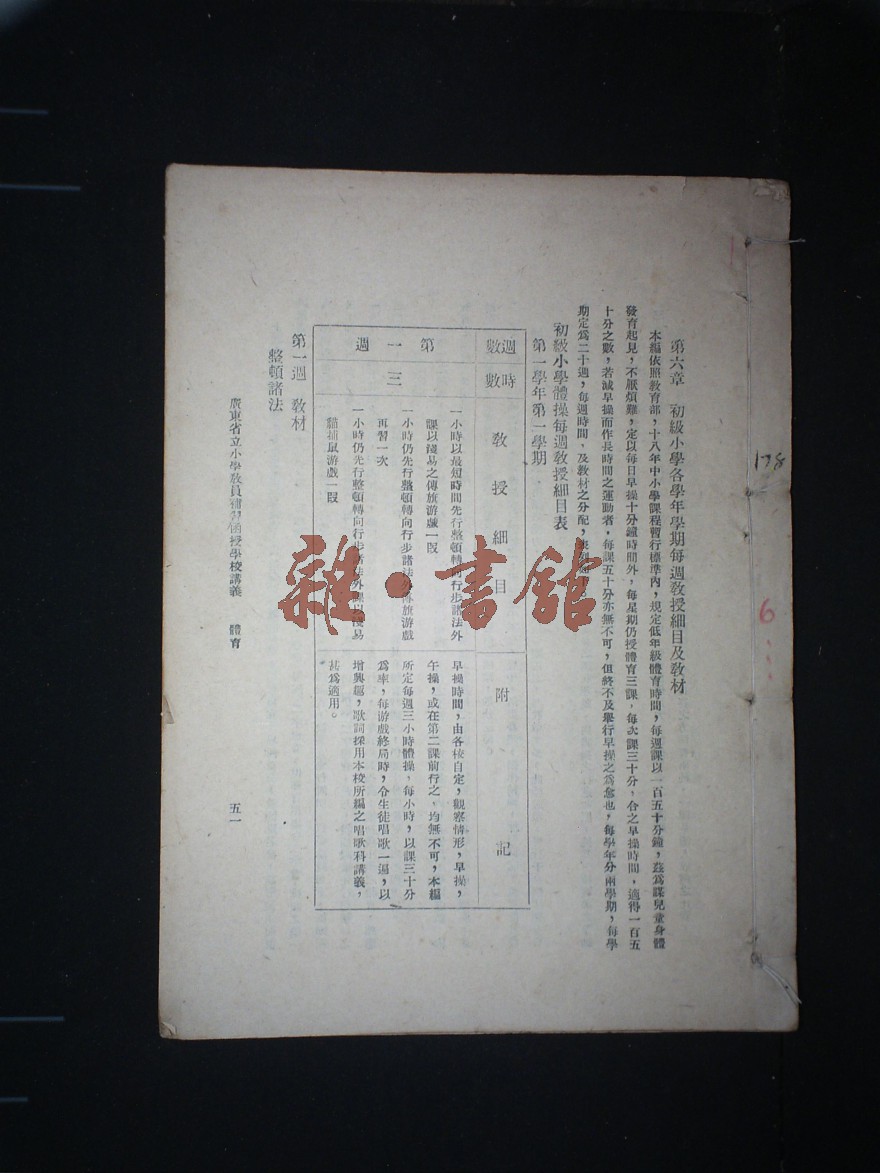 第六章　初級小學各學年學期每週敎授細目及敎材
本編依照敎育部，十八年中小學課程暫行標準內，規定低年級體育時間，每週課以一百五十分鐘，茲爲謀兒童身體
發育起見，不厭煩難，定以每日早操十分鐘時間外，每星期仍授體育三課，每次課三十分，合之早操時間，適得一百五
十分之數，若減早操而作長時間之運動者，每課五十分亦無不可，但終不及舉行早操之爲愈也，每學年分兩學期，每學
期定爲二十週，每週時間，及敎材之分配，
初級小學體操每週敎授細目表
第一學年第一學期
週數
時數
敎授細目
附記
第一週
三
一小時以最短時間先行整頓轉向行步諸法外
課以淺易之傳旗游戲一段
一小時仍先行整頓轉向行步諸法外傳旗游戲
再習一次
一小時仍先行整頓轉向行步諸法外課以淺易
貓捕鼠游戲一段
早操時間，由各校自定，觀察情形，早操，
午操，或在第二課前行之，均無不可，本編
所定每週三小時體操，每小時，以課三十分
爲率，每游戲終局時，令生徒唱歌一遍，以
增興趣，歌詞採用本校所編之唱歌科講義，
甚爲適用。
第一週　敎材
整頓諸法
廣東省立小學敎員補習函授學校講義　體育
五一
178
6
雜·書館